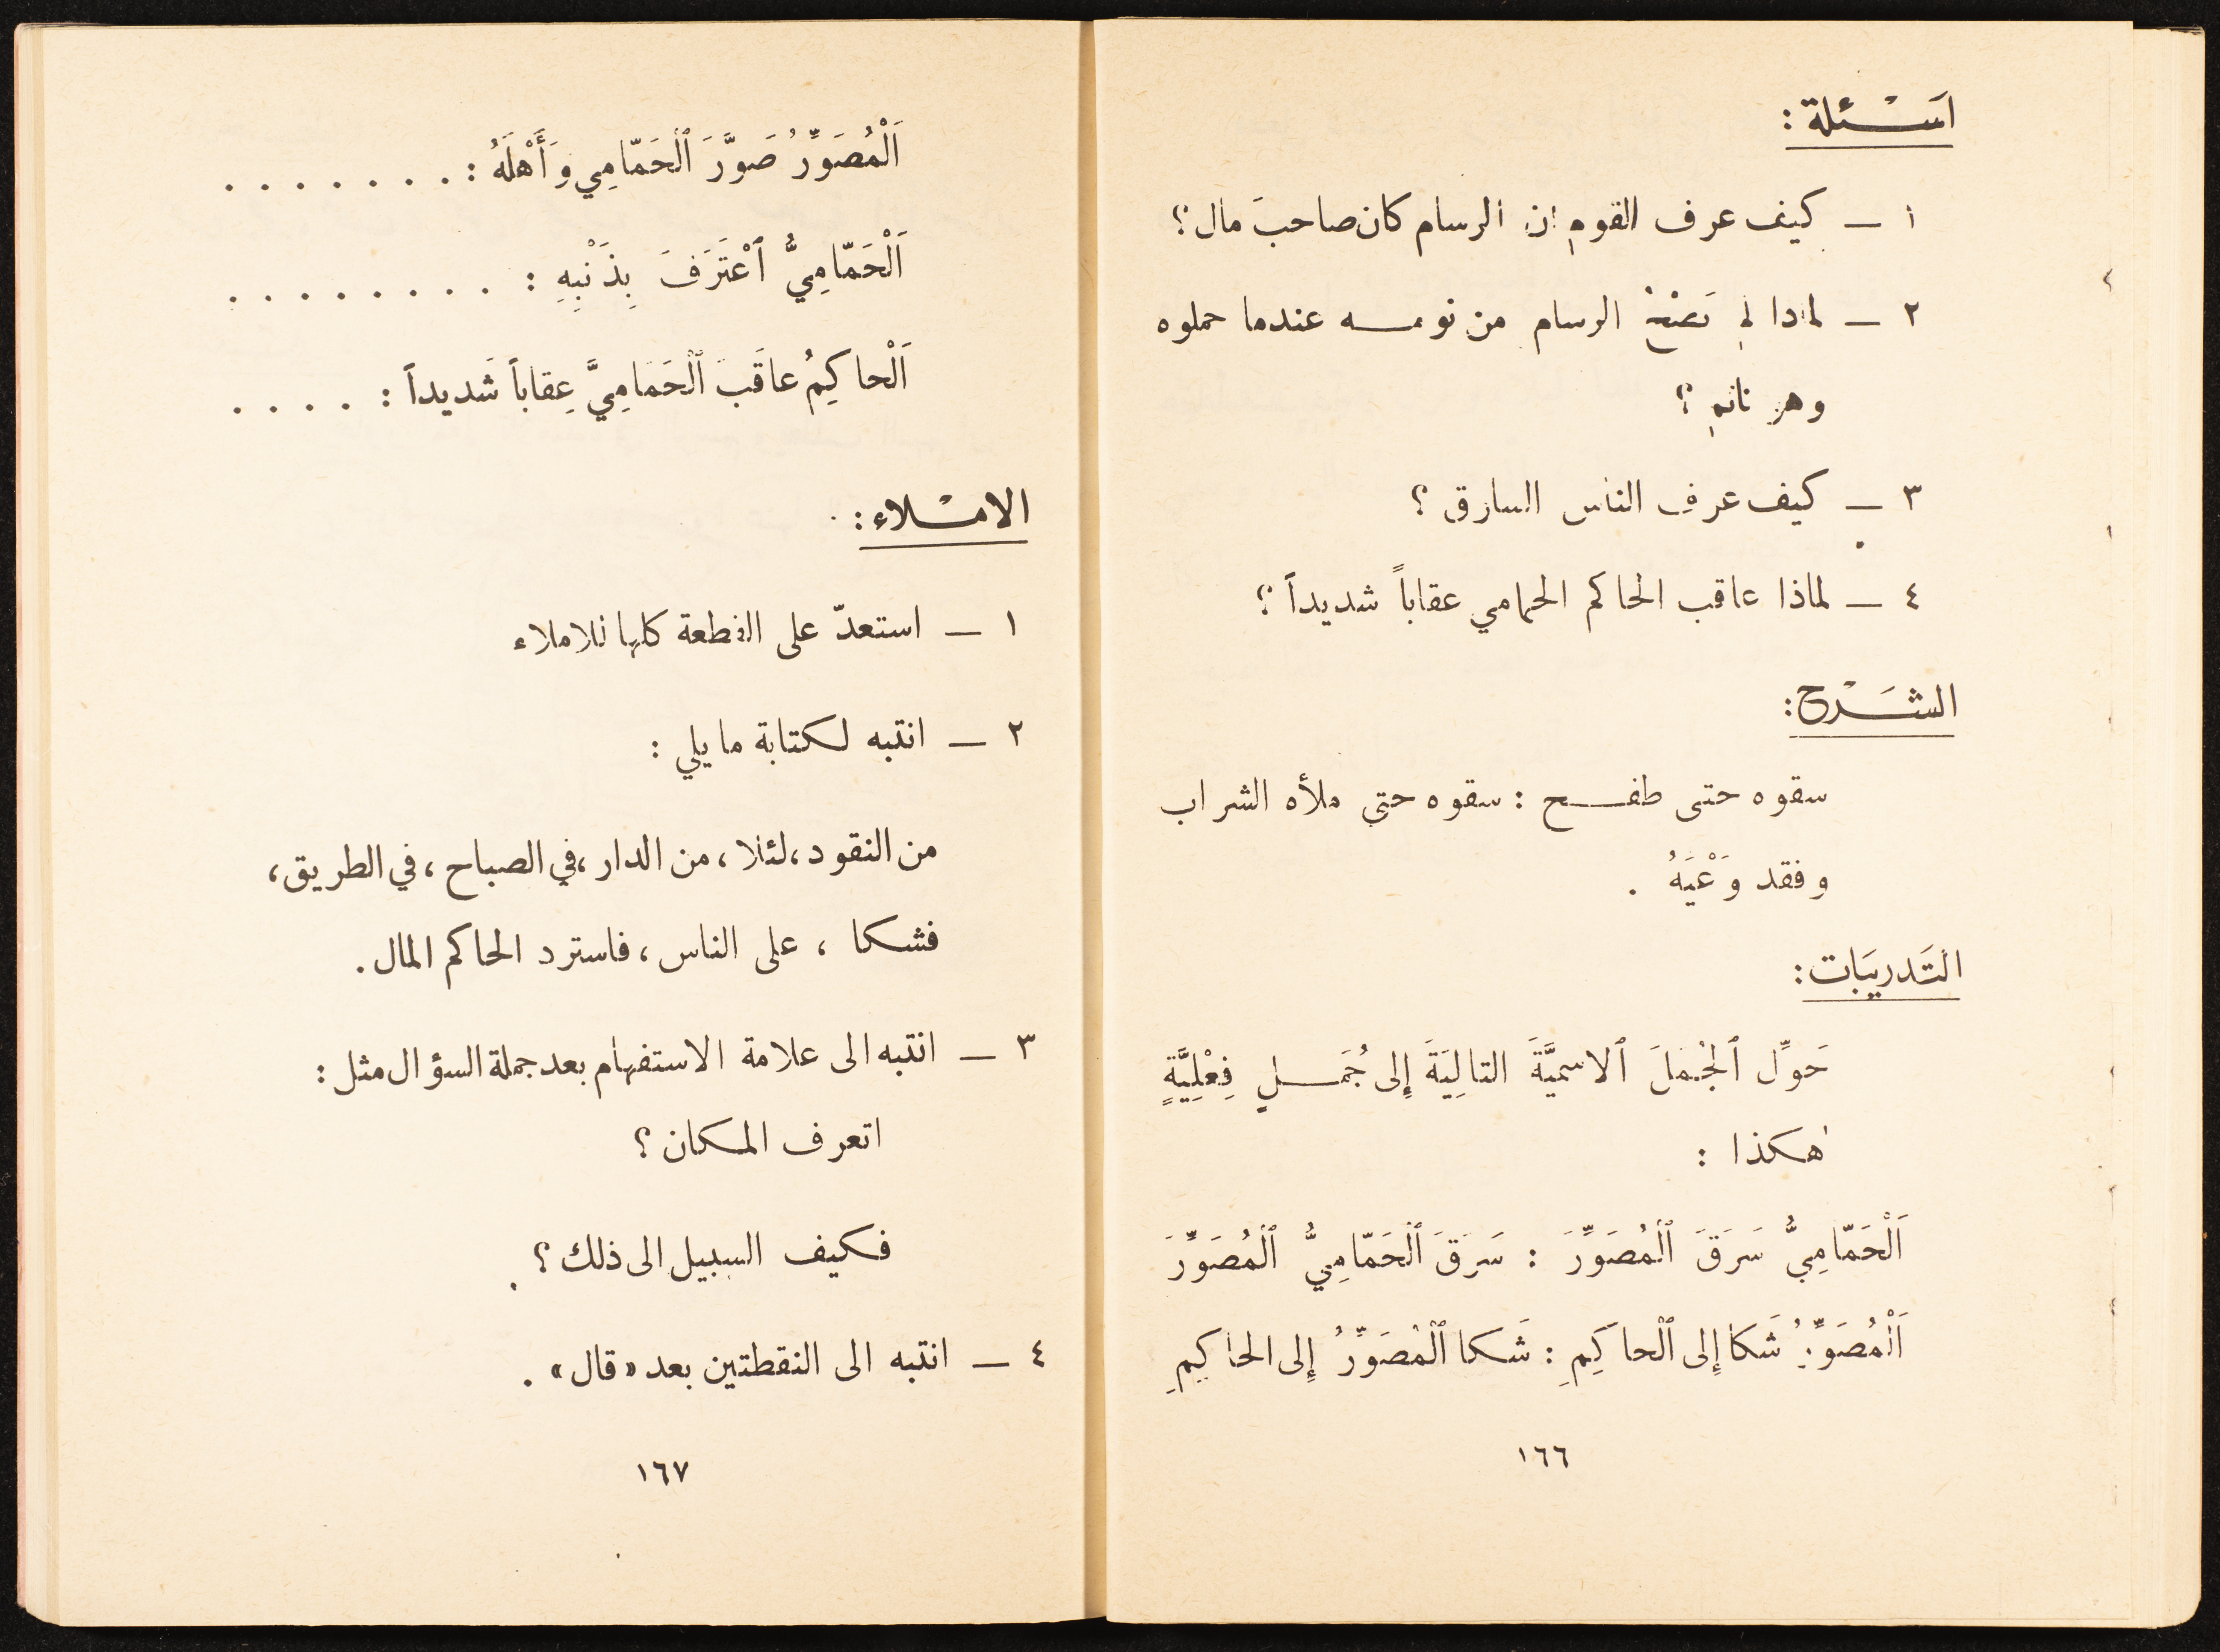 اَسْئلة :
١ — كيف عرف القوم ان الرسام كان صاحبَ مال ؟
٢ — لماذا لم يَصْحُ الرسام من نومه عندما حملوه
وهو نائم ؟
٣ — كيف عرف الناس السارق ؟
٤ — لماذا عاقب الحاكم الحمامي عقاباً شديداً ؟
الشَرْح :
سقوه حتى طفح : سقوه حتى ملأه الشراب
وفقد وَعْيَهُ .
التَدريبَات :
حَوِّل ٱلجُملَ ٱلاسميَّةَ التالِيَةَ إِلى جُمَلٍ فِعْلِيَّةٍ
هكذا :
اَلْحَمّامِيُّ سَرَقَ ٱلْمُصَوِّرَ : سَرَقَ ٱلْحَمّامِيُّ ٱلْمُصَوِّرَ
اَلْمُصَوِّرُ شَكا إِلى ٱلْحاكِمِ : شَكا ٱلْمُصَوِّرُ إِلى الحاكِمِ
١٦٦
اَلْمُصَوِّرُ صَوَّرَ ٱلْحَمّامِي وَأَهْلَهُ : . . . . . . .
اَلْحَمّامِيُّ ٱعْتَرَفَ بِذَنْبِهِ : . . . . . . . .
اَلْحاكِمُ عاقَبَ ٱلْحَمَامِيَّ عِقاباً شَديداً : . . . .
الامْلاء :
١ — استعدّ على القطعة كلها للاملاء
٢ — انتبه لكتابة ما يلي :
من النقود ، لئلا ، من الدار ، في الصباح ، في الطريق ،
فشكا ، على الناس ، فاسترد الحاكم المال .
٣ — انتبه الى علامة الاستفهام بعد جملة السؤال مثل :
اتعرف المكان ؟
فكيف السبيل الى ذلك ؟
٤ — انتبه الى النقطتين بعد «قال» .
١٦٧